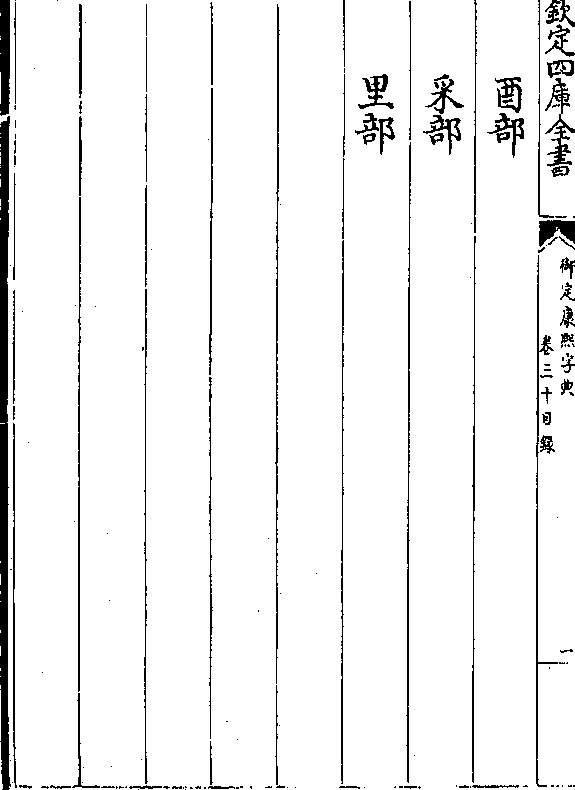 欽定四庫全書
御定康熙字典
卷三十目錄
一
酉部
釆部
里部